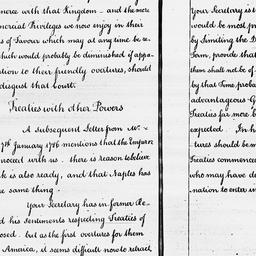 merce with that Kingdom – and the more
mercial Privileges we now enjoy in their
s of Favour which may at any time be re-
which would probably be diminished if appa-
ation to their friendly overtures, should
disgust that Court.
Treaties with other Powers
A subsequent Letter from Mr
7th January 1786 mentions that the Emperor
proceed with us. there is reason to believe
k is also ready, and that Naples has
he same thing.
Your Secretary has in former Re-
d his Sentiments respecting Treaties of
osed. but as the first overtures for them
America, it seems difficult now to retract
Your Secretary is t
would be most pr
by limiting the D
Som, provide that
them shall not be of
by that Time, proba
advantageous
Treaties far more b
expected. In h
tures should be m
Treaties commenced
who may have de
nation to enter in